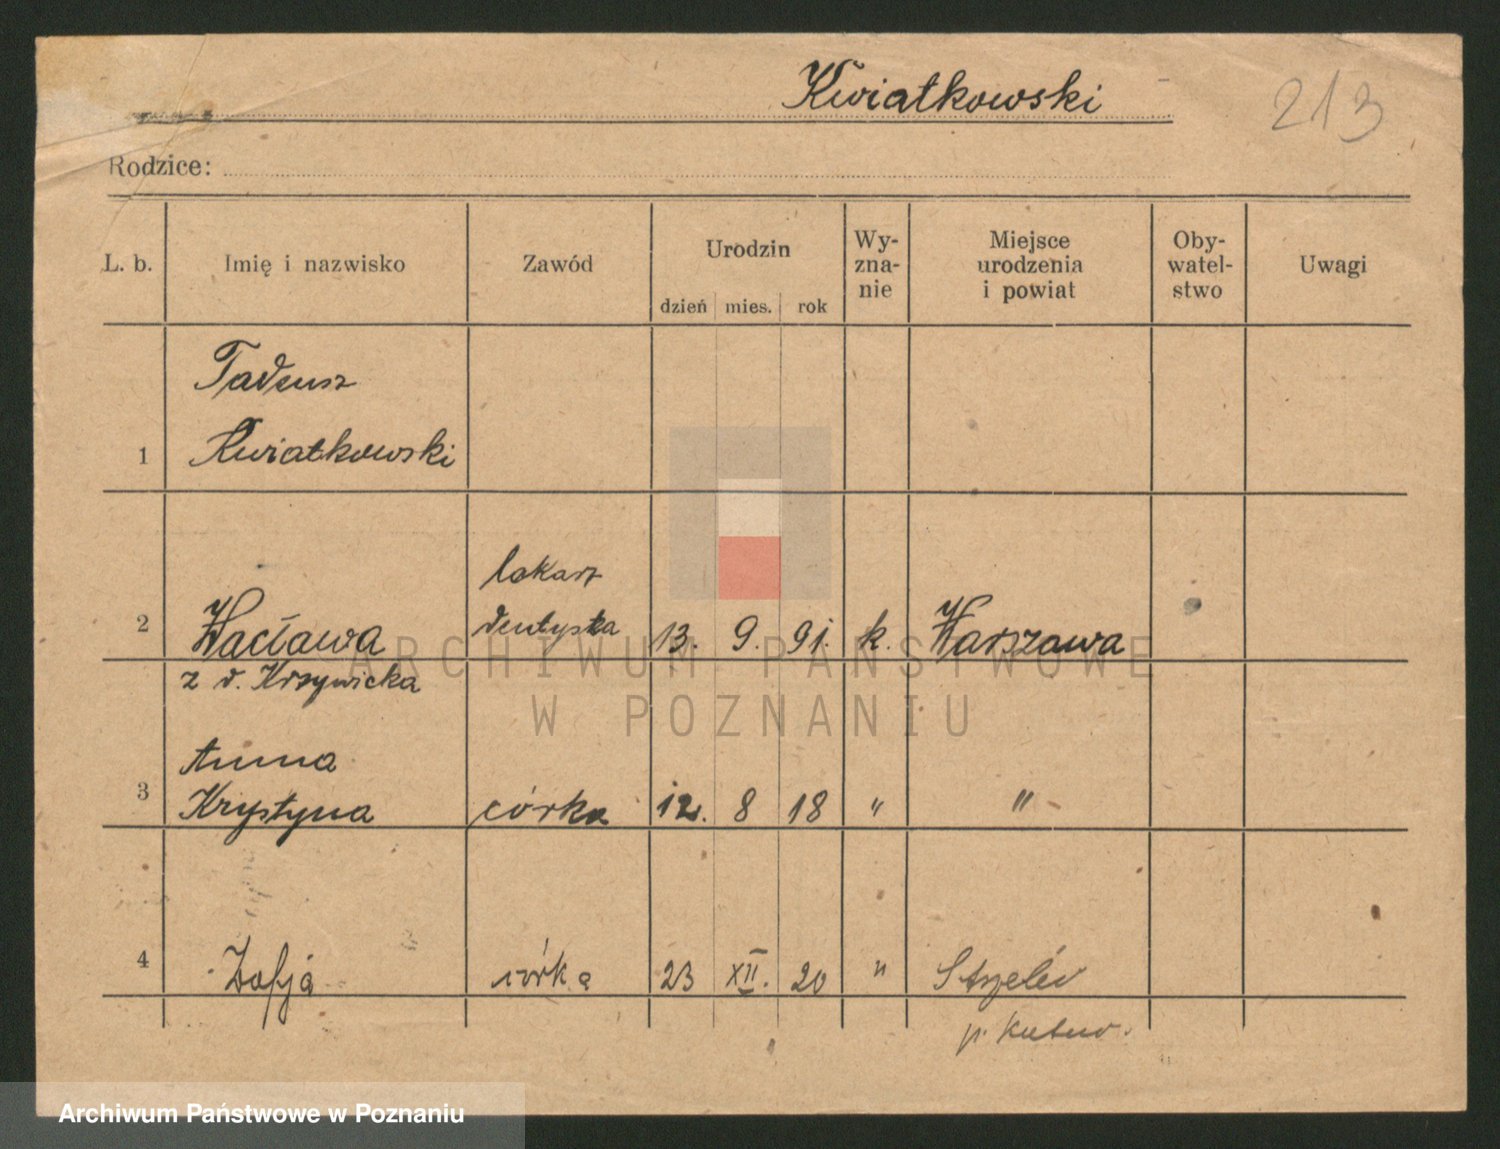 Kwiatkowski
213
Rodzice:
L. b. Imię i nazwisko Zawód Urodzin dzień mies. rok Wy-zna-nie Miejsce urodzenia i powiat Oby-watel-stwo Uwagi
Tadeusz
1 Kwiatkowski
lekarz
2 Wacława dentystka 13. 9. 91. k. Warszawa
z d. Krzywicka
Anna
3 Krystyna córka 12. 8 18 " "
4 Zofja córka 23 XII. 20 " Strzelce
p. Kutno.
ARCHIWUM PAŃSTWOWE
W POZNANIU
Archiwum Państwowe w Poznaniu